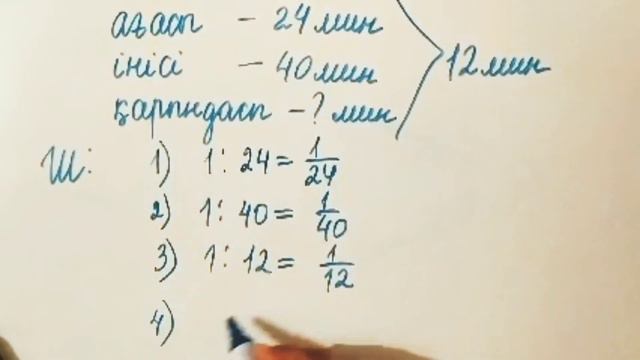 ағасы – 24 мин
інісі – 40 мин
қарындасы – ? мин
12 мин
Ш: 1) 1 : 24 = 1/24
2) 1 : 40 = 1/40
3) 1 : 12 = 1/12
4)